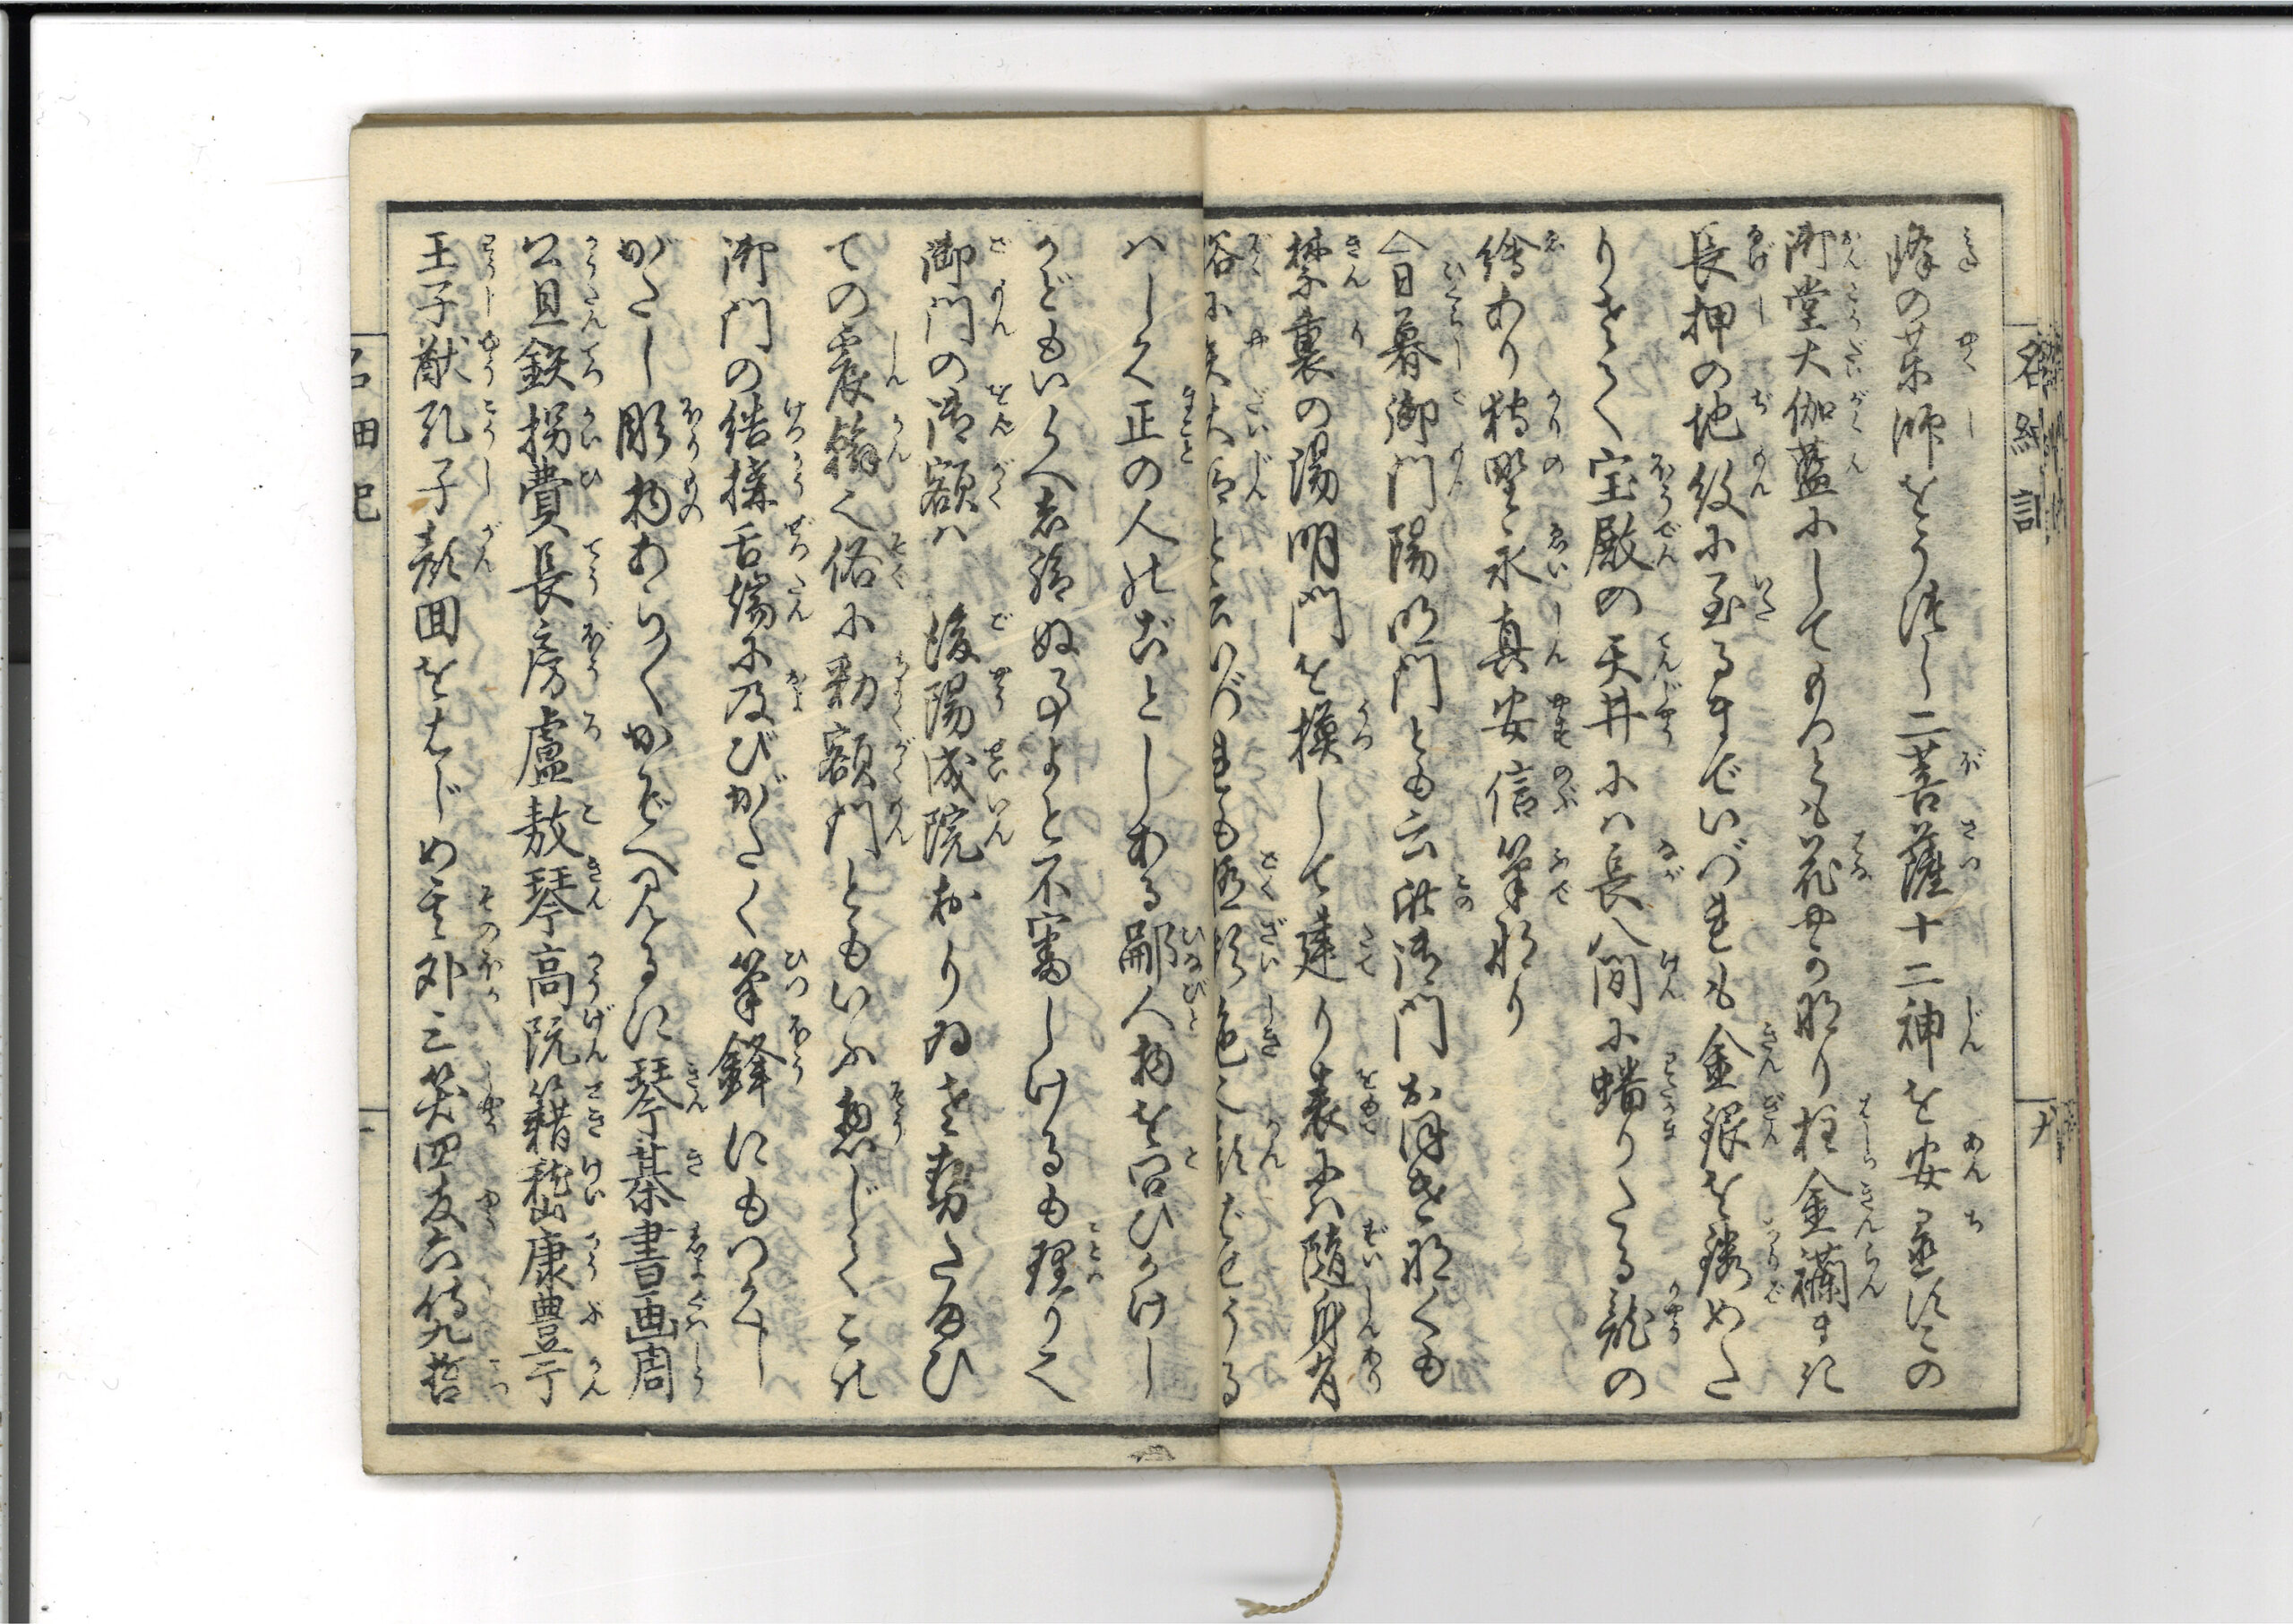 峰の薬師をうつし二菩薩十二神を安置すこの
御堂大伽藍にしてもつとも花やか也り柱金襴まき
長押の地紋に至るまでいづれも金銀を鏤めた
りさて宝殿の天井には長八間に蟠りたる龍の
絵あり狩野永真安信筆なり
日暮御門陽明門とも云此御門おほけなくも
禁裏の陽明門を模して建り表には随身有
俗に矢大臣と云いづれも極彩色
はしく正の人のごとしある鄙人物を問ひかけし
かどもいらへ志給ぬ事よと不審しけるも理りて
御門の御額は 後陽成院おりゐさせたまひ
ての震翰て俗に勅額門ともいふ惣じてこの
御門の結構舌端に及びがたく筆鋒にもつくし
がたし彫物あらかたかぞへ見るに琴棊書画周
公旦鉄拐費長房盧敖琴高阮籍嵆康豊干
王子猷孔子顔回をはじめ其外三笑四友六侍九哲